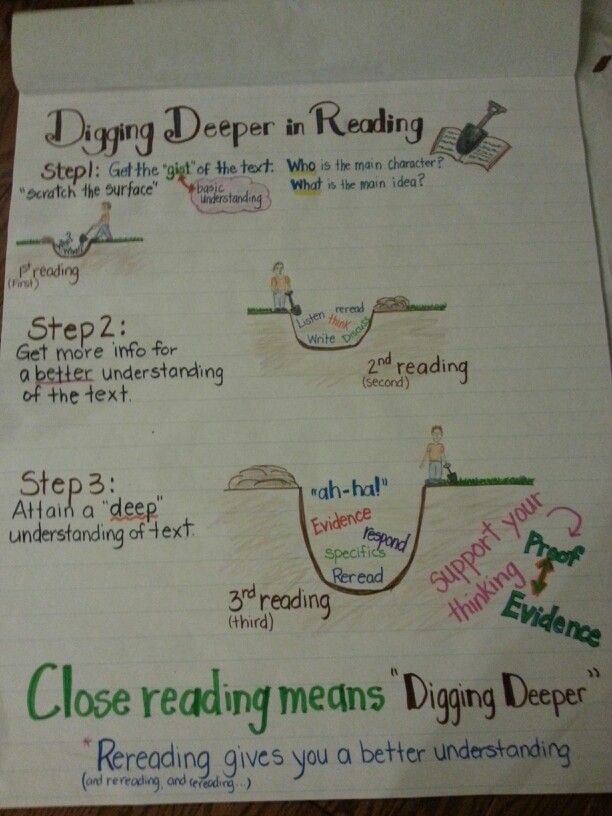 Digging Deeper in Reading
Step 1: Get the "gist" of the text. Who is the main character?
"scratch the surface" basic understanding What is the main idea?
1st reading
(First)
Step 2:
Get more info for
a better understanding
of the text.
Listen reread
think
Write Discuss
2nd reading
(second)
Step 3:
Attain a "deep"
understanding of text.
"ah-ha!"
Evidence
respond
specifics
Reread
3rd reading
(third)
Support your
thinking
Proof
Evidence
Close reading means "Digging Deeper"
*Rereading gives you a better understanding
(and rereading, and rereading...)